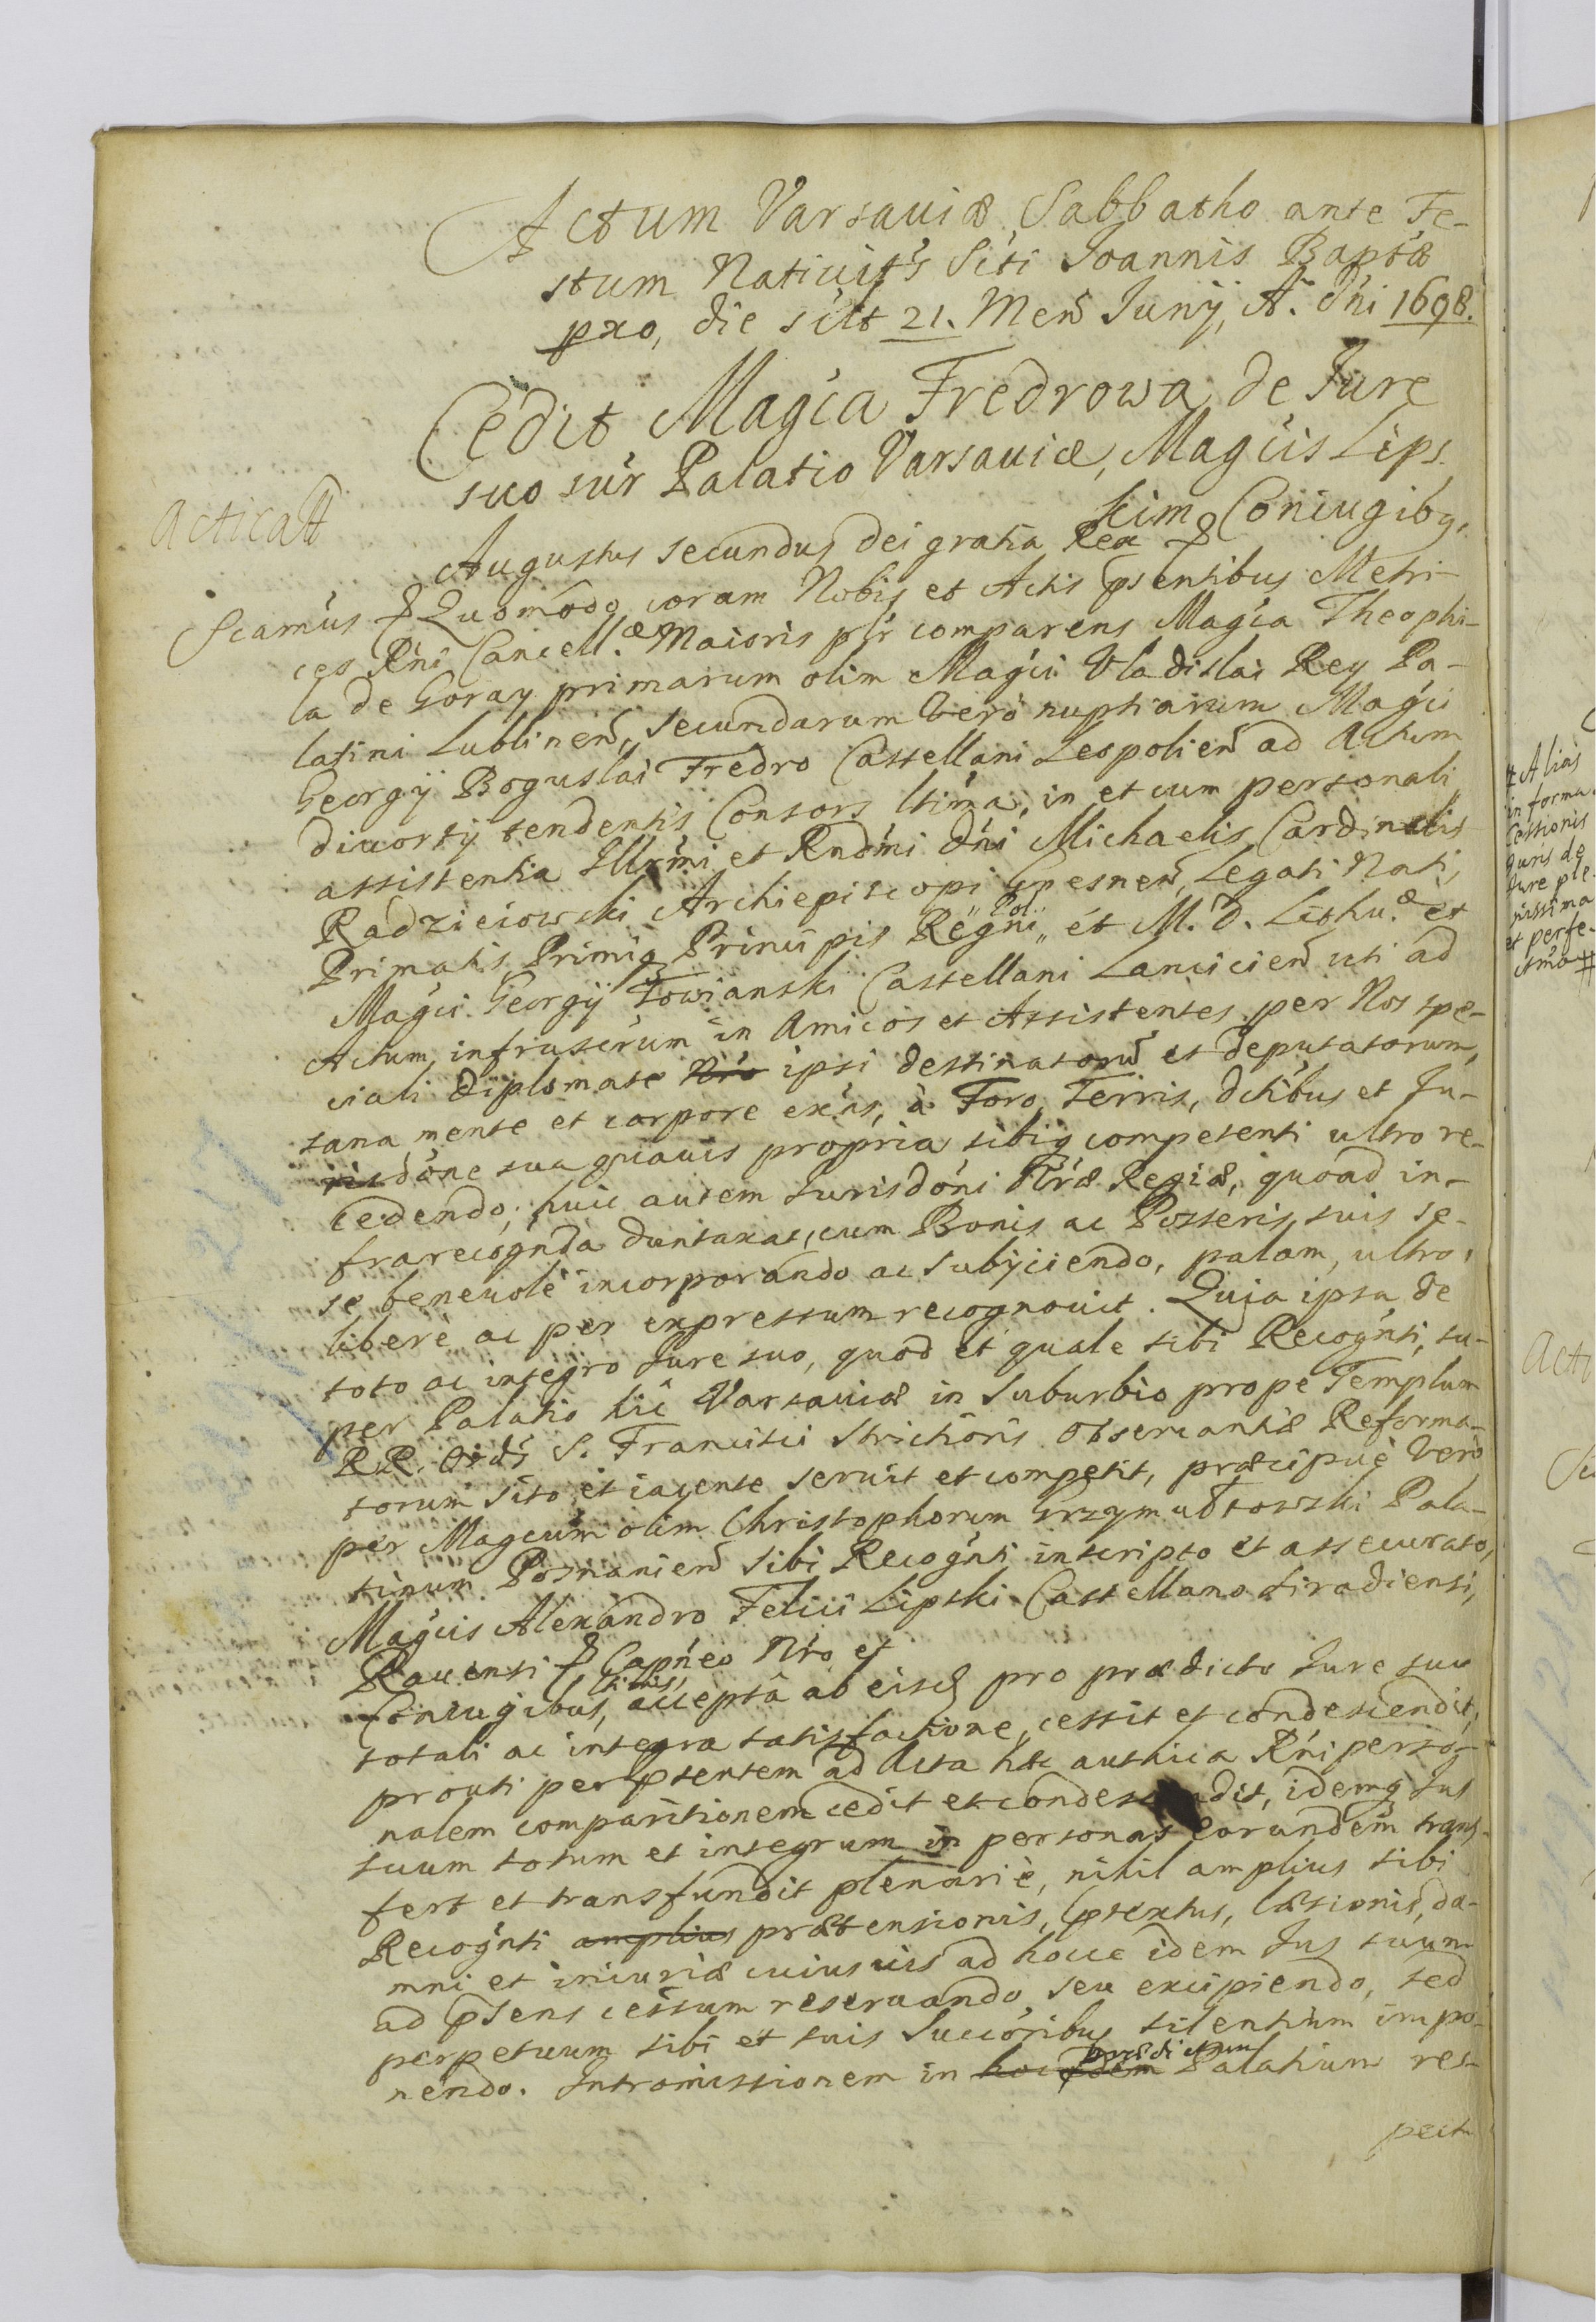 Actum Varsauiæ Sabbatho ante Fe-
stum Natiuit̃s S̃cti Joannis Bap̃tæ
pxo, die s̃clt 21. Meñ Junÿ, A. D̃ni 1698.
Cedit Mag̃ca Fredrowa de Jure
suo sũr Palatio Varsauiæ, Mag̃cis Lips.
kim Coniugibꝫ.
Acticatt
Augustus secundus dei gratia Rex
Scamus Quomodo coram Nobis et Actis p̃sentibus Metri-
ces R̃ni Cancell.æ Maioris p̃lr comparens Mag̃ca Theophi-
la de Goray primarum olim Mag̃ci Vladislai Rey Pa-
latini Lublineñ, secundarum vero nuptiarum Mag̃ci
Georgÿ Boguslai Fredro Castellani Leopolieñ ad Actum
diuortÿ tendentis Consors l̃tima, in et cum personali
assistentia Ill̃rmi et Rnd̃mi D̃ni Michaelis Cardinalis
Radzieiowski Archiepiscopi Gnesneñ, Legati Nati,
Primatis Primiq Principis Regni Pol. et M. D. Lithu.æ et
Mag̃ci Georgÿ Towianski Castellani Lancicieñ uti ad
Actum infrascrũm in Amicos et Assistentes per Nos spe-
ciali diplomate Ñro ipsi destinatorũ et deputatorum,
sana mente et corpore exñs, à Foro, Terris, d̃ctibus et Ju-
risd̃one sua quauis propria sibiq competenti ultro re-
cedendo, huic autem Jurisd̃oni Ñræ Regiæ, quoad in-
frarecog̃nda duntaxat, cum Bonis ac Posteris suis se-
se beneuole incorporando ac subÿciendo, palam, ultro,
liberè ac per expressum recognouit. Quia ipsa de
toto ac integro Jure suo, quod et quale sibi Recog̃nti, su-
per Palatio hic Varsauiæ in Suburbio prope Templum
RR. Ord̃s S. Francisci Strictioris Obseruantiæ Reforma-
torum sito et iacente seruit et competit, præcipuè verò
per Mag̃cum olim Christophorum Grzymułtowski Pala-
tinum Posnanieñ sibi Recog̃nti inscripto et assecurato,
Mag̃cis Alexandro Felici Lipski Castellano Siradiensi,
Rauensi Cap̃neo Ñro et
Coniugibus, l̃timis, acceptâ ab eisd pro prædicto Jure suo
totali ac integra satisfactione, cessit et condescendit,
prouti per p̃sentem ad Acta hæc aut̃hica R̃ni perso-
nalem comparitionem cedit et condescendit, idemq Jus
suum totum et integrum in personas earundem trans-
fert et transfundit plenariè, nihil amplius sibi
Recog̃nti amplius prætensionis, p̃textus, læsionis, da-
mni et iniuriæ cuiusuis ad hocce idem Jus suum
ad p̃sens cessum reseruando seu excipiendo, sed
perpetuum sibi et suis Succ̃oribus silentium impo-
nendo. Intromissionem in hoc idem prædictum Palatium res-
pect
# Alias
in forma
Cessionis
Juris de
Jure ple-
nissima
et perfe-
ctma #